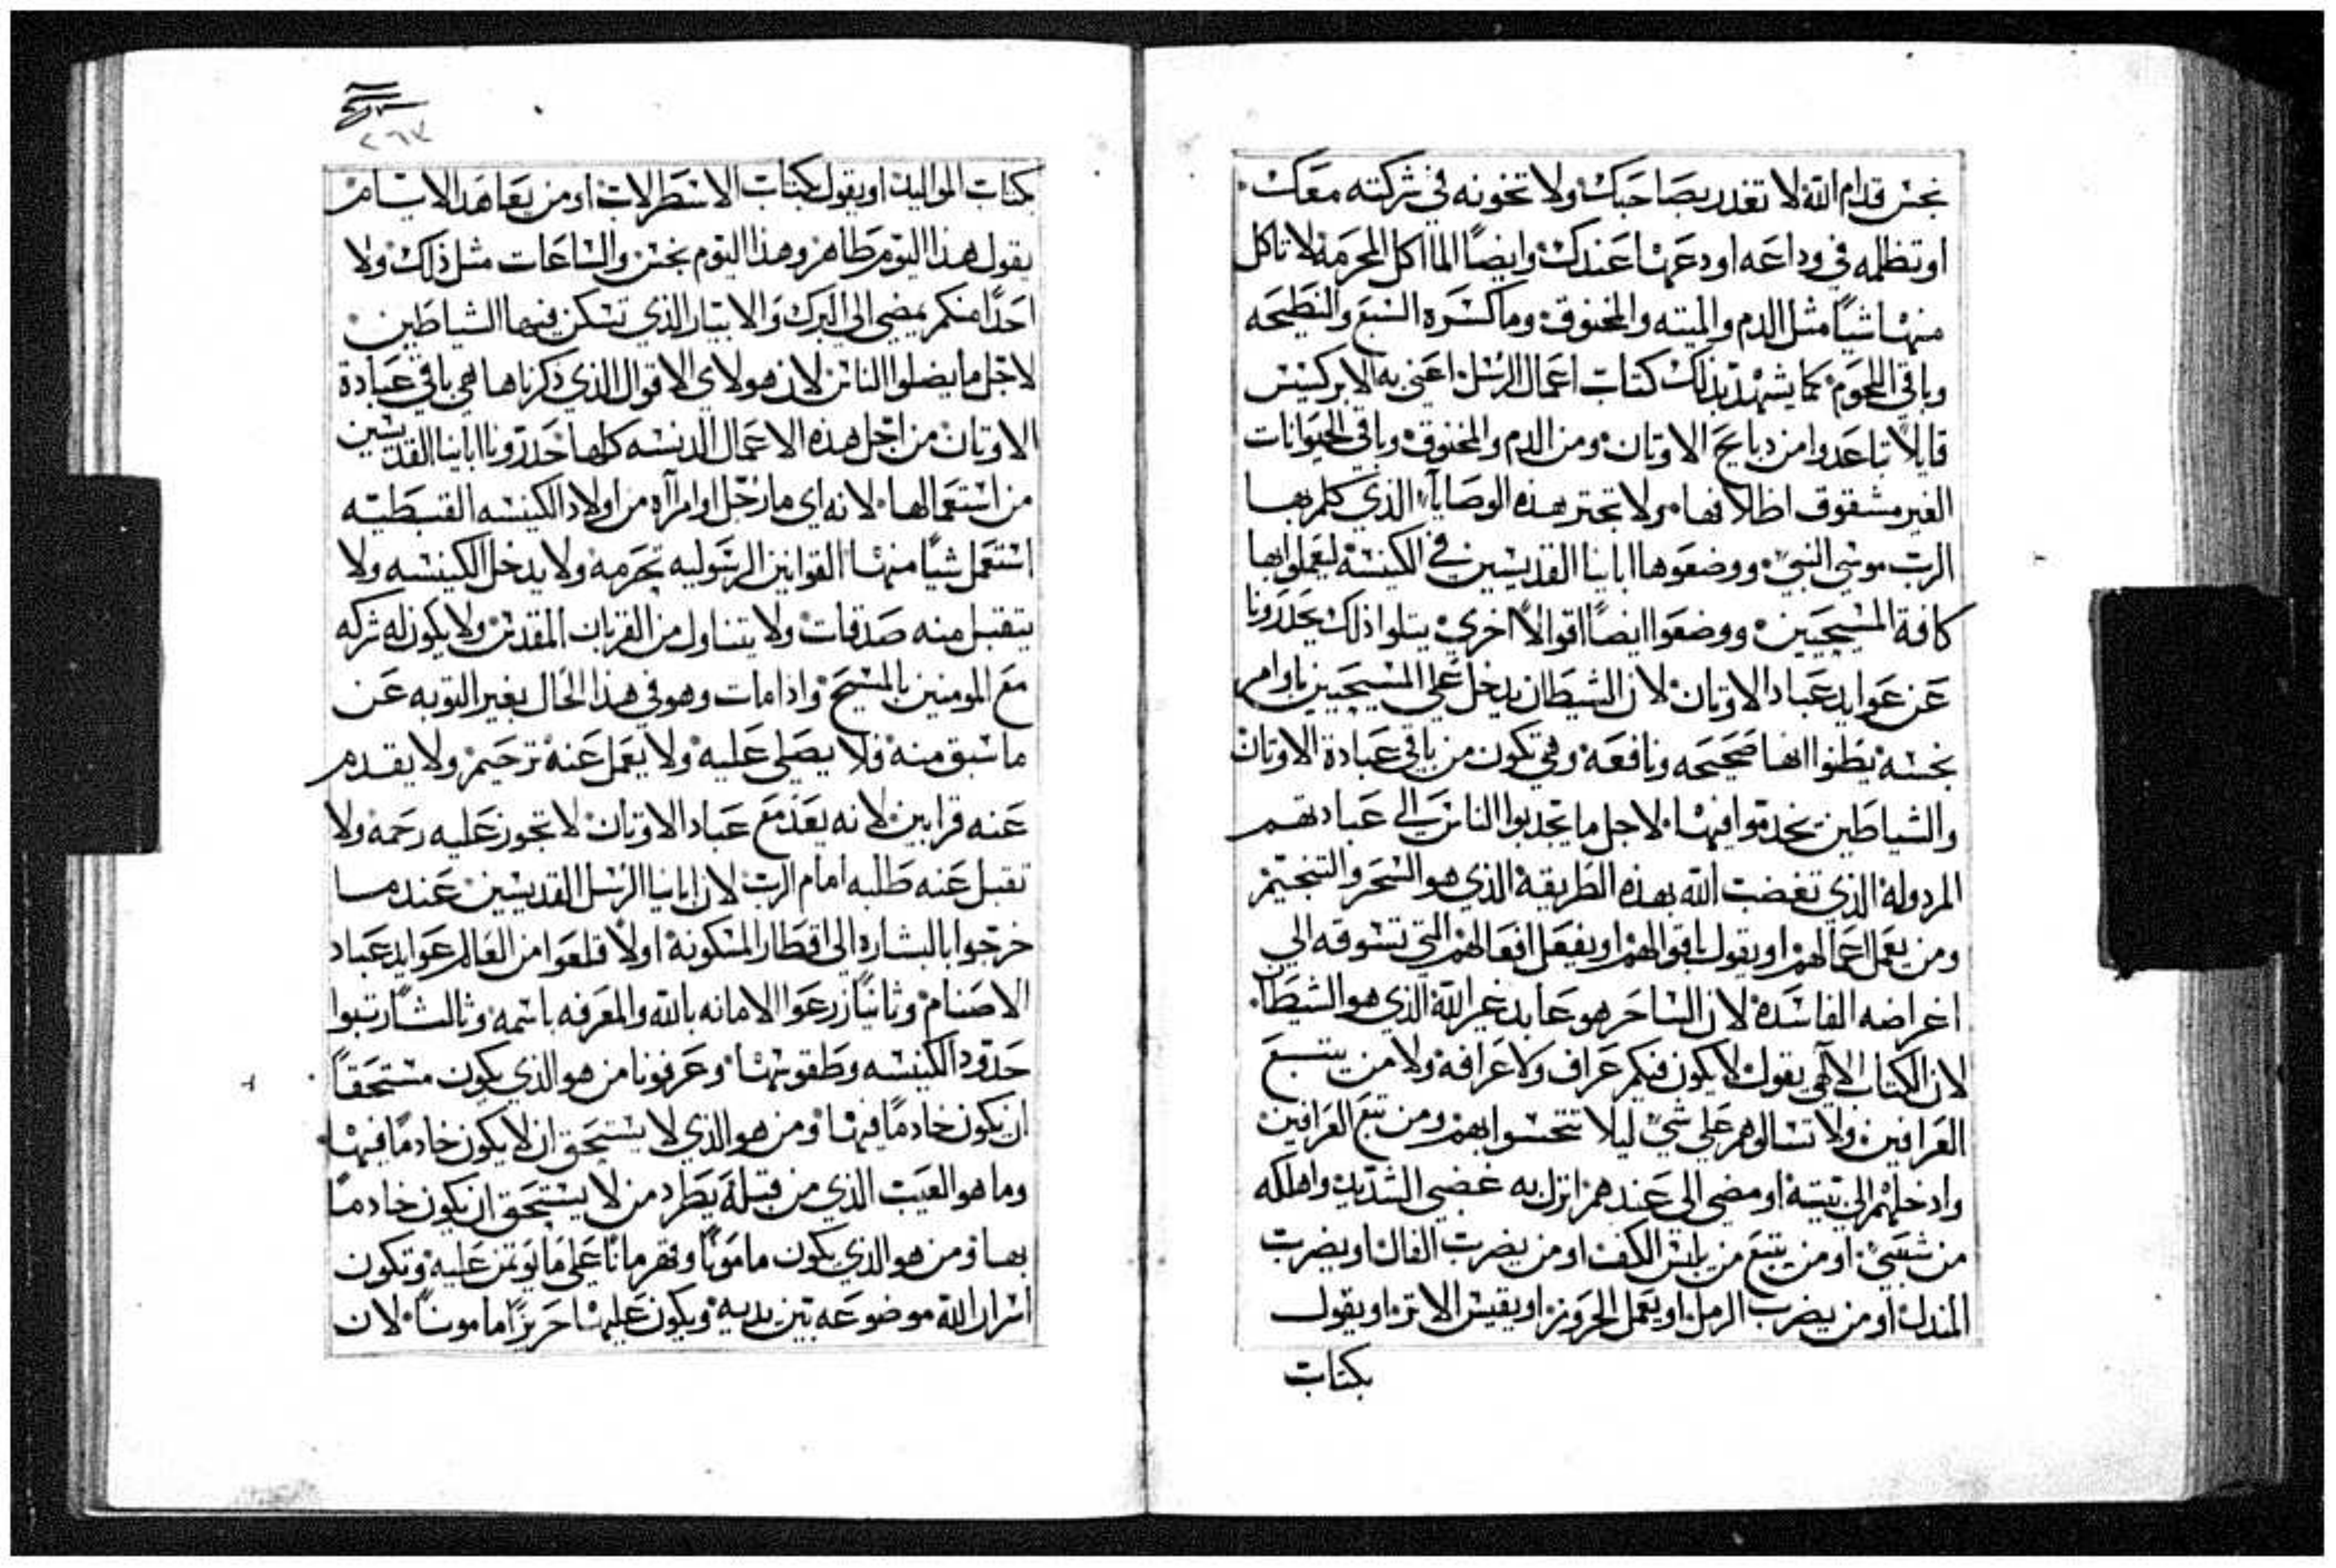 نجس قدام الله لا تغدر بصاحبك ولا تخونه في شركته معك
او تظلمه في وداعه اودعها عندك وايضا الماكل المحرمه لا تاكل
منها شيا مثل الدم والميته والمخنوق وما كسره السبع والنطيحه
وباقي اللحوم كما يشهد بذلك كتاب اعمال الرسل اعني به الابركسيس
قايلا تباعدوا من دبايح الاوتان ومن الدم والمخنوق وباقي الحيوانات
الغير مشقوق اظلافها ولا تجتر هذه الوصايا الذي كلم بها
الرب موسى النبي ووضعوها اباينا القديسين في الكنيسه ليعملوا بها
كافة المسيحيين ووضعوا ايضا اقوالا اخري يتلوا ذلك يحدرونا
عن عوايد عباد الاوتان لان الشيطان يدخل علي المسيحيين باوامر
نجسه يظنوا انها صحيحه ونافعه وهي تكون من باقي عبادة الاوتان
والشياطين يخدموا فيها لاجل ما يجدبوا الناس الي عبادتهم
المردوله الذي تغضب الله بهذه الطريقه الذي هو السحر والتنجيم
ومن يعمل اعمالهم او يقول باقوالهم او يفعل افعالهم التي تسوقه الي
اغراضه الفاسده لان الساحر هو عابد غير الله الذي هو الشيطان
لان الكتاب الالهي يقول لا يكون فيكم عراف ولا عرافه ولا من يتبع
العرافين ولا تسالوهم علي شي ليلا تتنجسوا بهم ومن تبع العرافين
وادخلهم الي بيته او مضي الي عندهم انزل به غضبي الشديد واهلكه
من شعبي او من يتبع من يابس الكف او من يضرب الفال او يضرب
المندل او من يضرب الرمل او يعمل الحروز او يقيس الاتر او يقول
بكتاب
٢٦٧
بكتاب المواليد او يقول بكتاب الاسطرلاب او من يعاهد الايام
يقول هذا اليوم طاهر وهذا اليوم نجس والساعات مثل ذلك ولا
احدا منكم يمضي الي البرك والابيار الذي تسكن فيها الشياطين
لاجل ما يضلوا الناس لان هولاي الاقوال الذي ذكرناها هي باقي عبادة
الاوتان من اجل هذه الاعمال الدنسه كلها حدرونا اباينا القديسين
من استعمالها لانه اي من رجل او امراه من اولاد الكنيسه القبطيه
استعمل شيا منها القوانين الرسوليه تحرمه ولا يدخل الكنيسه ولا
يتقبل منه صدقات ولا يتناول من القربان المقدس ولا يكون له شركه
مع المومنين بالمسيح واذا مات وهو في هذا الحال بغير التوبه عن
ما سبق منه فلا يصلي عليه ولا يعمل عنه ترحيم ولا يقدم
عنه قرابين لانه يعد مع عباد الاوتان لا تجوز عليه رحمه ولا
تقبل عنه طلبه امام الرب لان اباينا الرسل القديسين عندما
خرجوا بالبشاره الي اقطار المسكونه اولا قلعوا من العالم عوايد عباد
الاصنام وثانيا زرعوا الامانه بالله والمعرفه باسمه وثالثا رتبوا
حدود الكنيسه وطقوسها وعرفونا من هو الذي يكون مستحقا
ان يكون خادما فيها ومن هو الذي لا يستحق ان لا يكون خادما فيها
وما هو العيب الذي من قبله يطرد من لا يستحق ان يكون خادما
بها ومن هو الذي يكون مامونا وقهرمانا علي ما يوتمن عليه وتكون
اسرار الله موضوعه بين يديه ويكون عليها حريزا مامونا لان